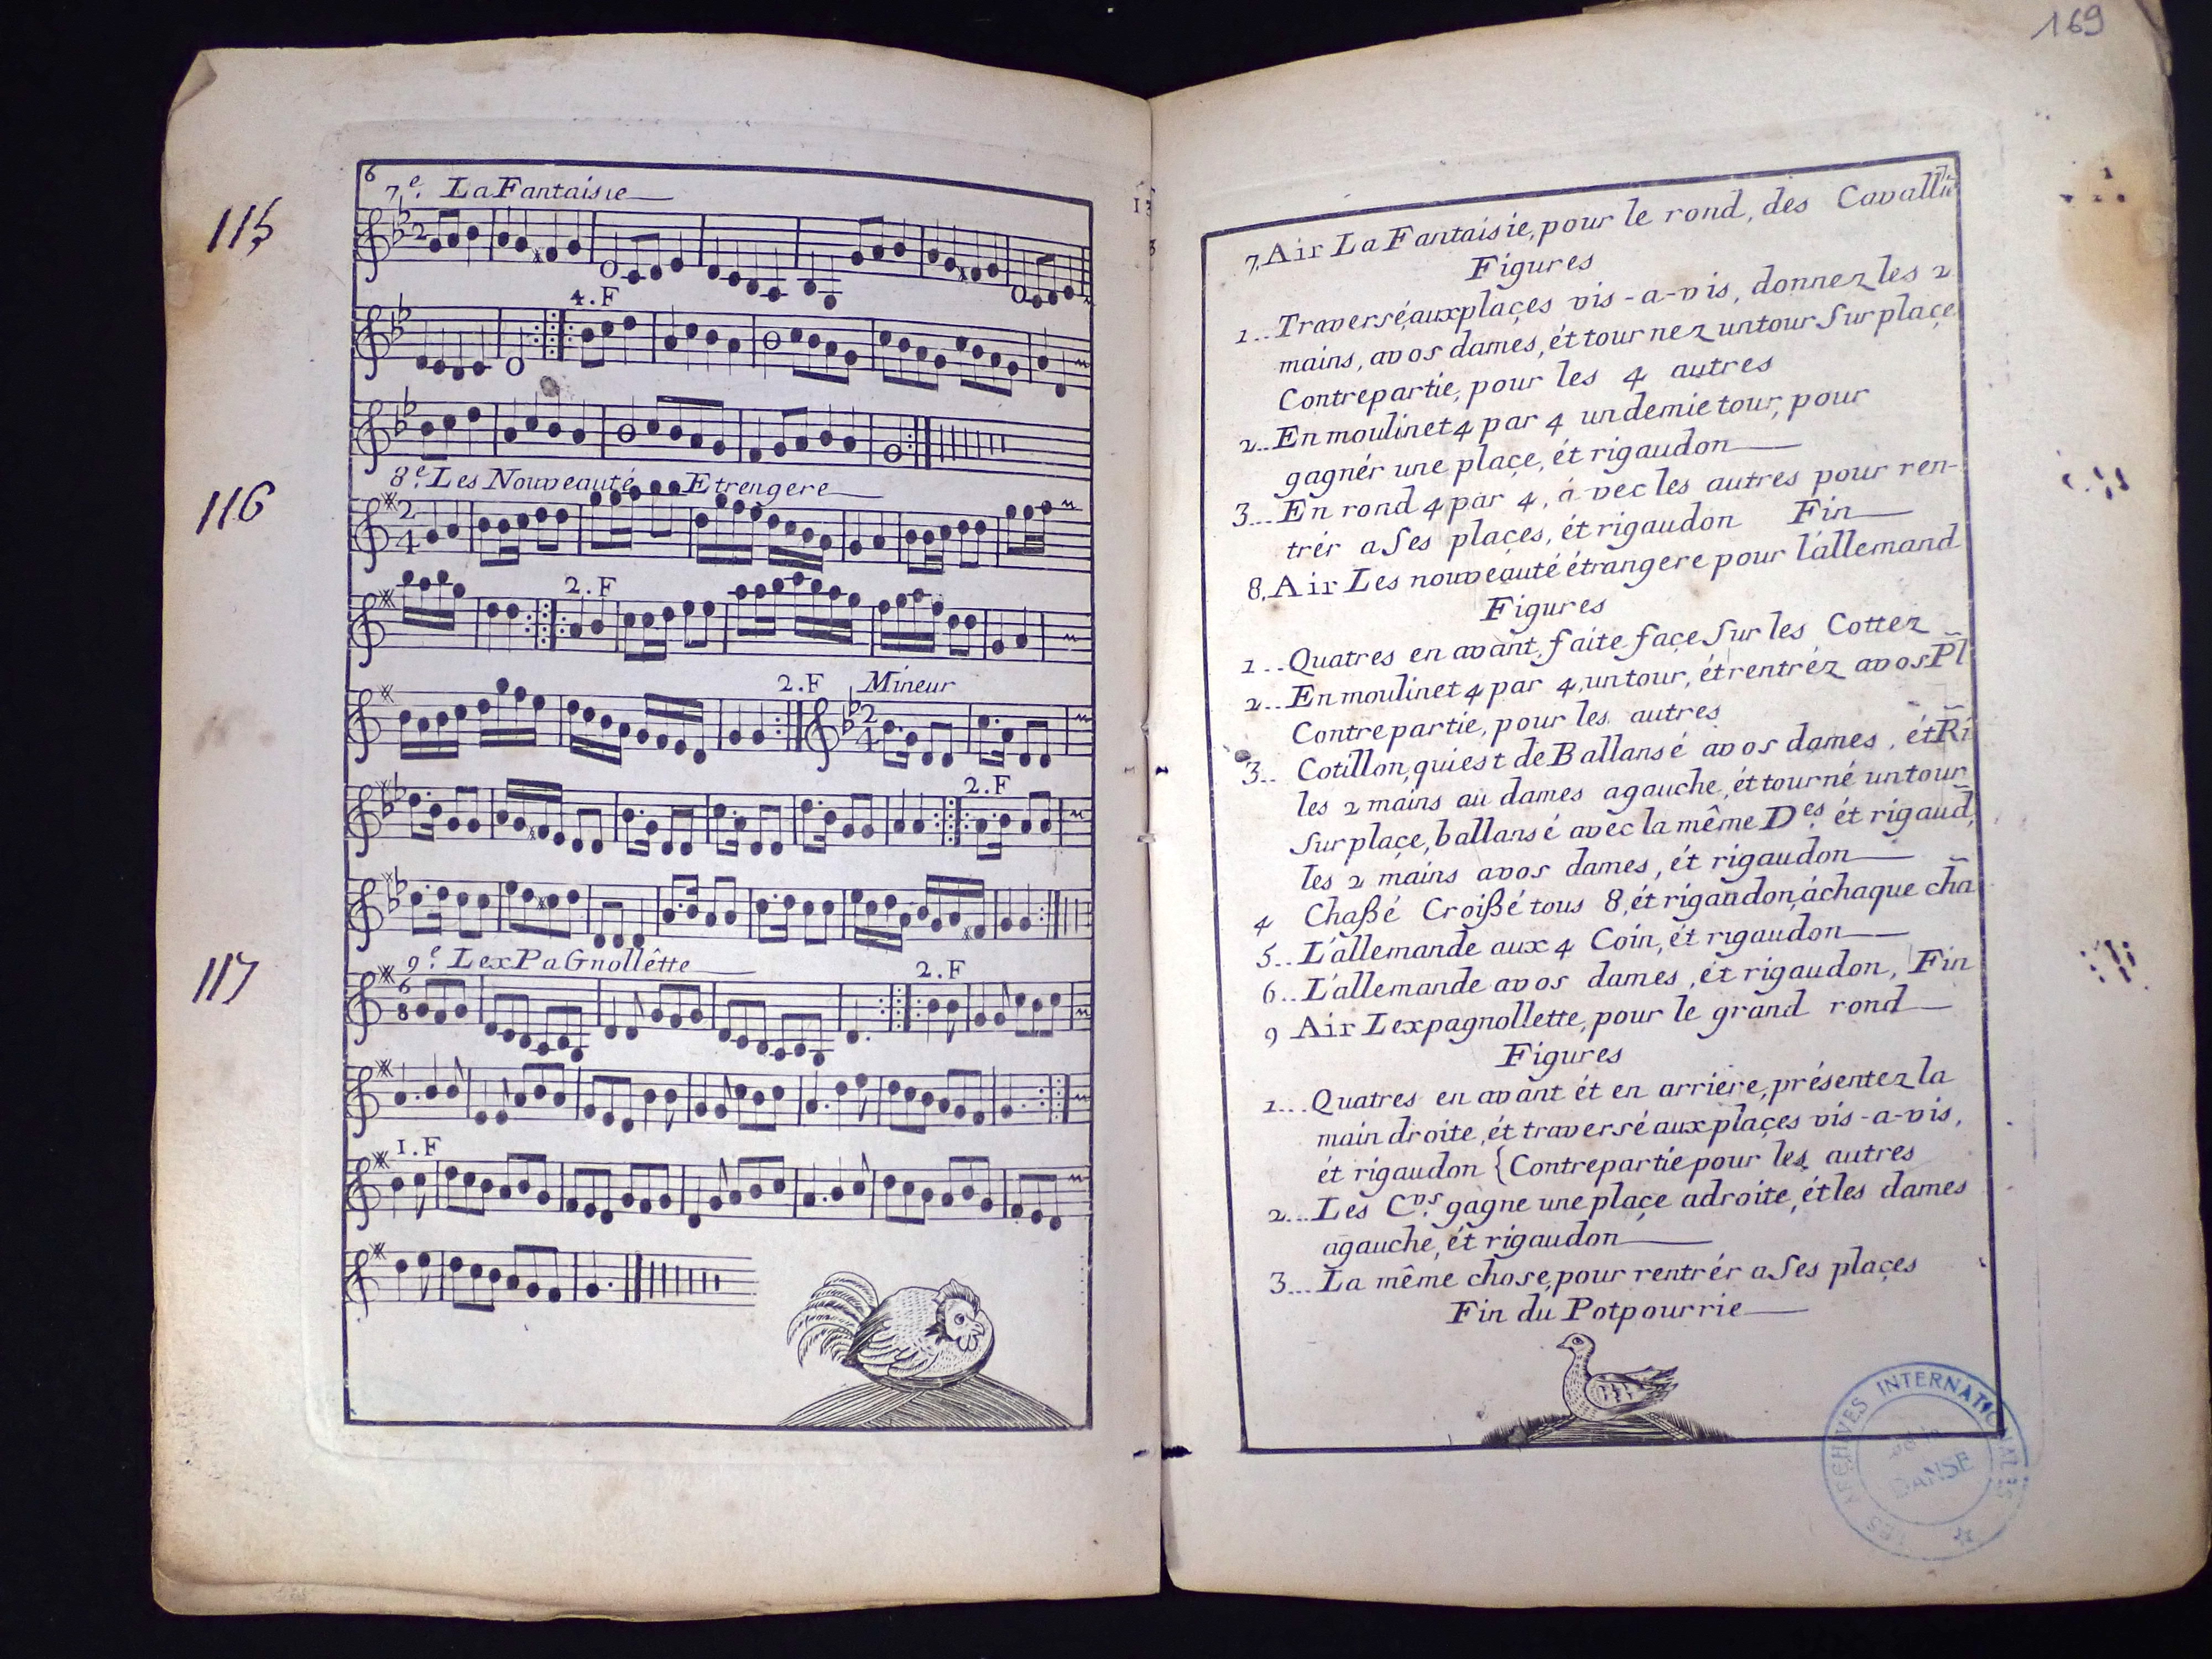 115
116
117
6
7.e La Fantaisie
2
4.F
8.e Les Nouveauté Etrengere
2 4
2.F
2.F Mineur
2 4
2.F
9.e Lex Pa Gnollêtte
6 8
2.F
1.F
169
7. Air La Fantaisie, pour le rond, des
Figures
1.. Traversé, aux plaçes vis-a-vis, donnez les 2
mains, avos dames, ét tournez un tour Sur plaçe
Contrepartie, pour les 4 autres
2.. En moulinet 4 par 4 un demie tour, pour
gagnér une plaçe, ét rigaudon
3... En rond 4 par 4, avec les autres pour ren-
trér a Ses plaçes, ét rigaudon Fin
8. Air Les nouveauté étrangere pour lállemand
Figures
1.. Quatres en avant, faite façe Sur les Cottez
2.. En moulinet 4 par 4, un tour, ét rentréz avos Pl
Contrepartie, pour les autres
3.. Cotillon, qui est de Ballansé avos dames, ét Ri
les 2 mains au dames agauche, ét tourné un tour
Sur plaçe, ballansé avec la même Des ét rigaud,
les 2 mains avos dames, ét rigaudon
4 Chaßé Croißé tous 8, ét rigaudon, áchaque cha
5.. L'allemande aux 4 Coin, ét rigaudon
6.. L'allemande avos dames, ét rigaudon, Fin
9 Air Lexpagnollette, pour le grand rond
Figures
1... Quatres en avant ét en arriére, présentez la
main droite, ét traversé aux plaçes vis-a-vis,
ét rigaudon {Contrepartie pour les autres
2... Les Cvs. gagne une plaçe adroite, ét les dames
agauche, ét rigaudon
3... La même chose, pour rentrér a Ses plaçes
Fin du Potpourrie
LES ARCHIVES INTERNATIONALES
DANSE